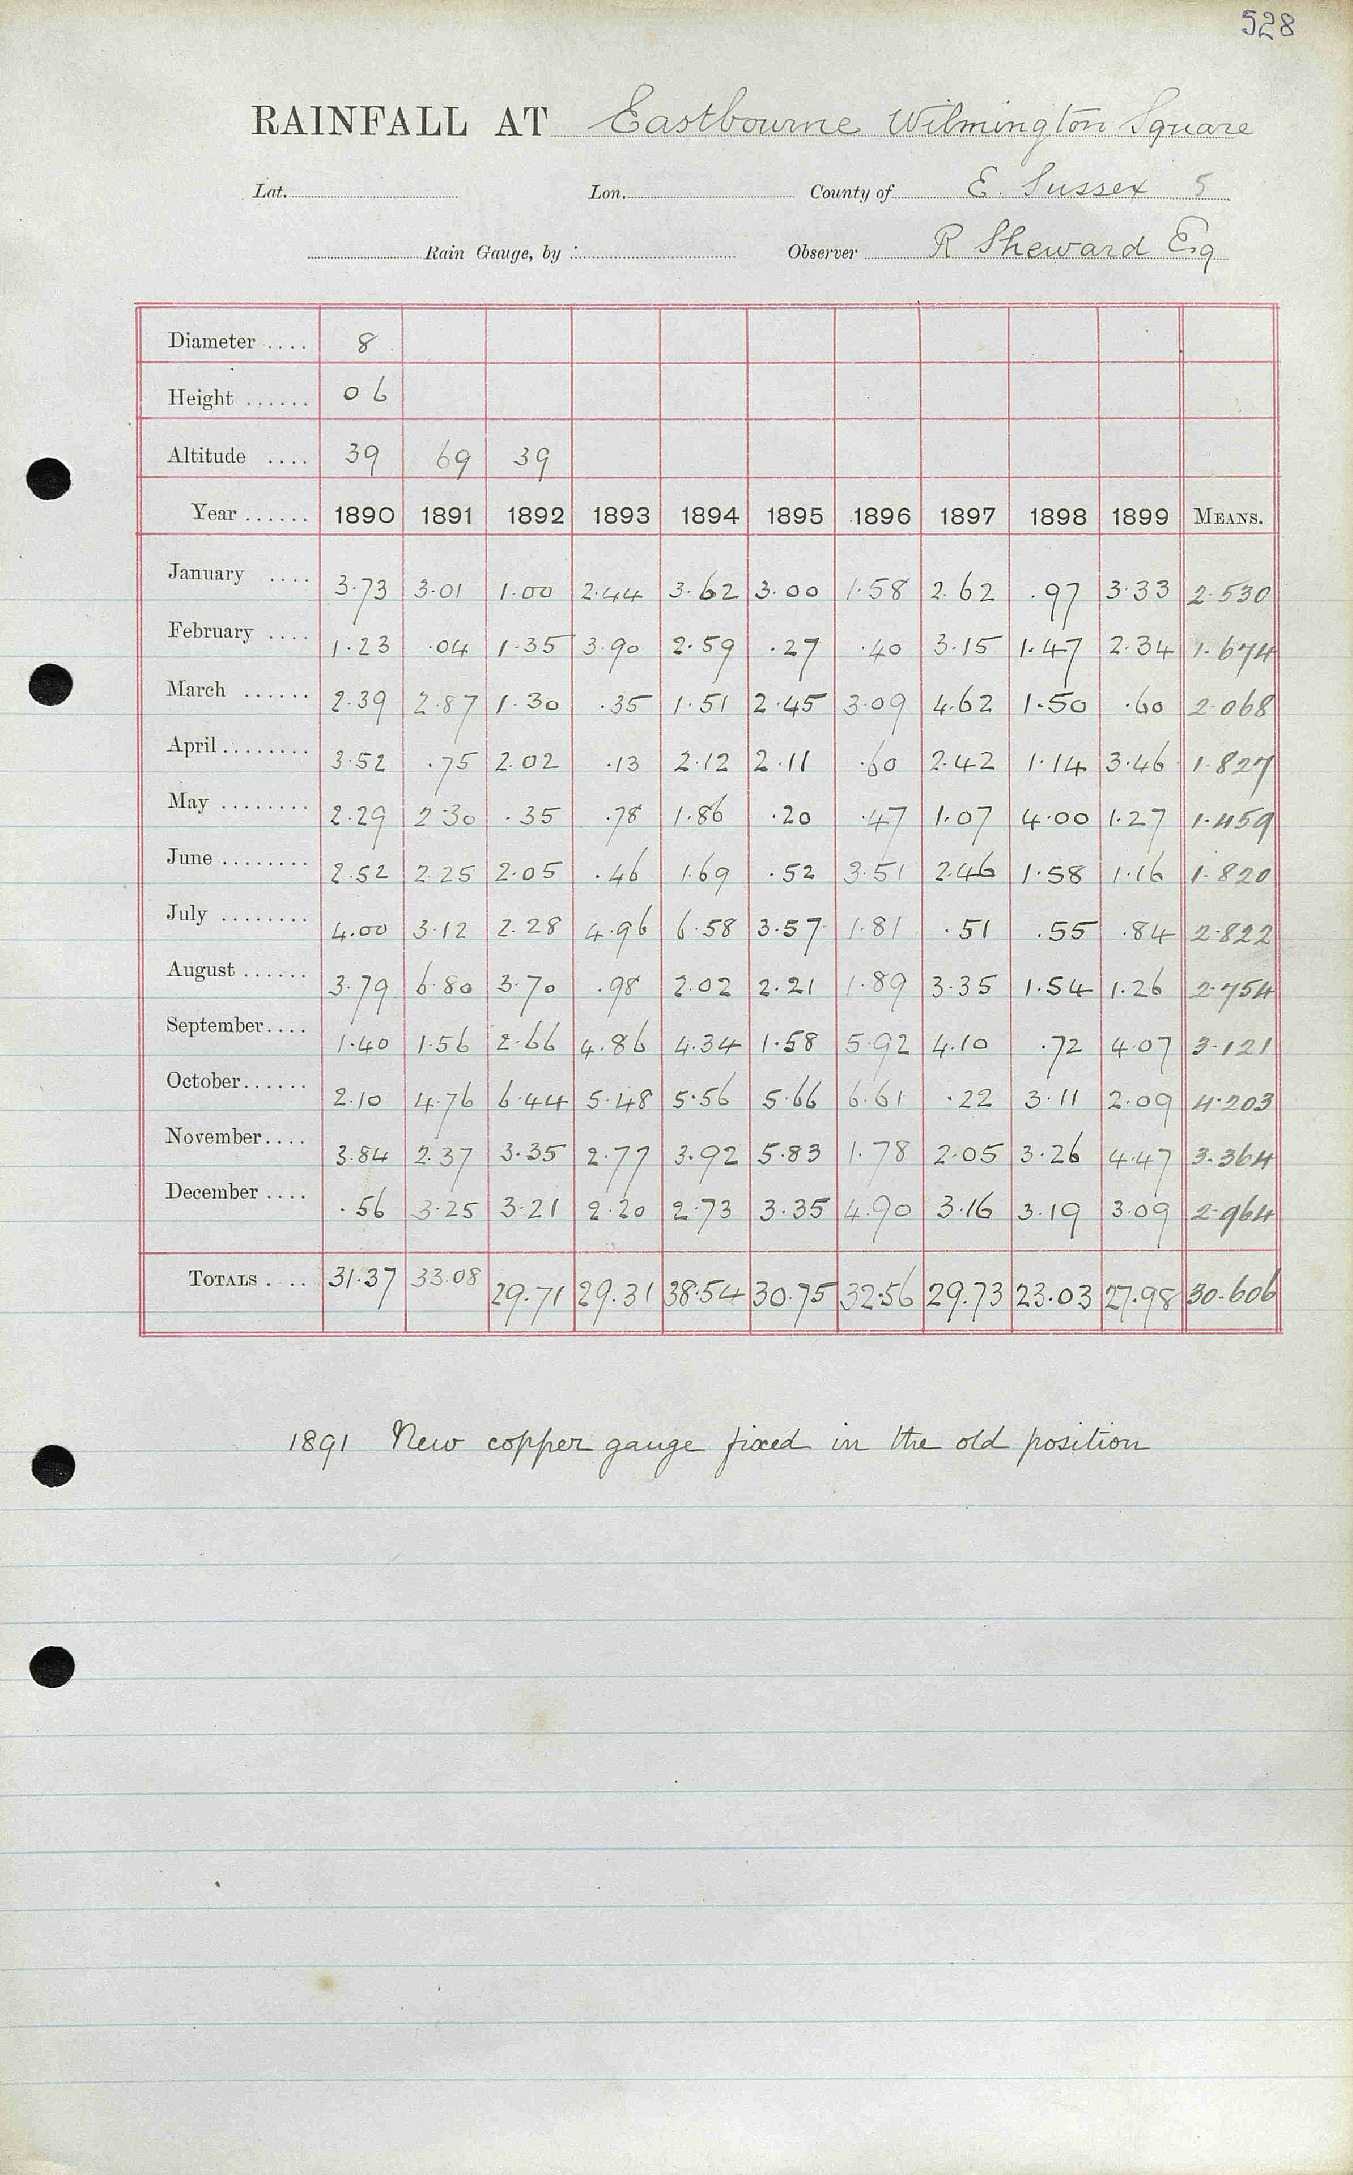 528
RAINFALL AT Eastbourne Wilmington Square
Lat. Lon. County of E. Sussex 5
Rain Gauge, by Observer R Sheward Esq
Diameter .... 8
Height ...... 0 6
Altitude .... 39 69 39
Year ...... 1890 1891 1892 1893 1894 1895 1896 1897 1898 1899 MEANS.
January .... 3.73 3.01 1.00 2.44 3.62 3.00 1.58 2.62 .97 3.33 2.530
February .... 1.23 .04 1.35 3.90 2.59 .27 .40 3.15 1.47 2.34 1.674
March ...... 2.39 2.87 1.30 .35 1.51 2.45 3.09 4.62 1.50 .60 2.068
April ........ 3.52 .75 2.02 .13 2.12 2.11 .60 2.42 1.14 3.46 1.827
May ........ 2.29 2.30 .35 .78 1.86 .20 .47 1.07 4.00 1.27 1.459
June ........ 2.52 2.25 2.05 .46 1.69 .52 3.51 2.46 1.58 1.16 1.820
July ........ 4.00 3.12 2.28 4.96 6.58 3.57 1.81 .51 .55 .84 2.822
August ...... 3.79 6.80 3.70 .98 2.02 2.21 1.89 3.35 1.54 1.26 2.754
September .... 1.40 1.56 2.66 4.86 4.34 1.58 5.92 4.10 .72 4.07 3.121
October ...... 2.10 4.76 6.44 5.48 5.56 5.66 6.61 .22 3.11 2.09 4.203
November .... 3.84 2.37 3.35 2.77 3.92 5.83 1.78 2.05 3.26 4.47 3.364
December .... .56 3.25 3.21 2.20 2.73 3.35 4.90 3.16 3.19 3.09 2.964
TOTALS .... 31.37 33.08 29.71 29.31 38.54 30.75 32.56 29.73 23.03 27.98 30.606
1891 New copper gauge fixed in the old position